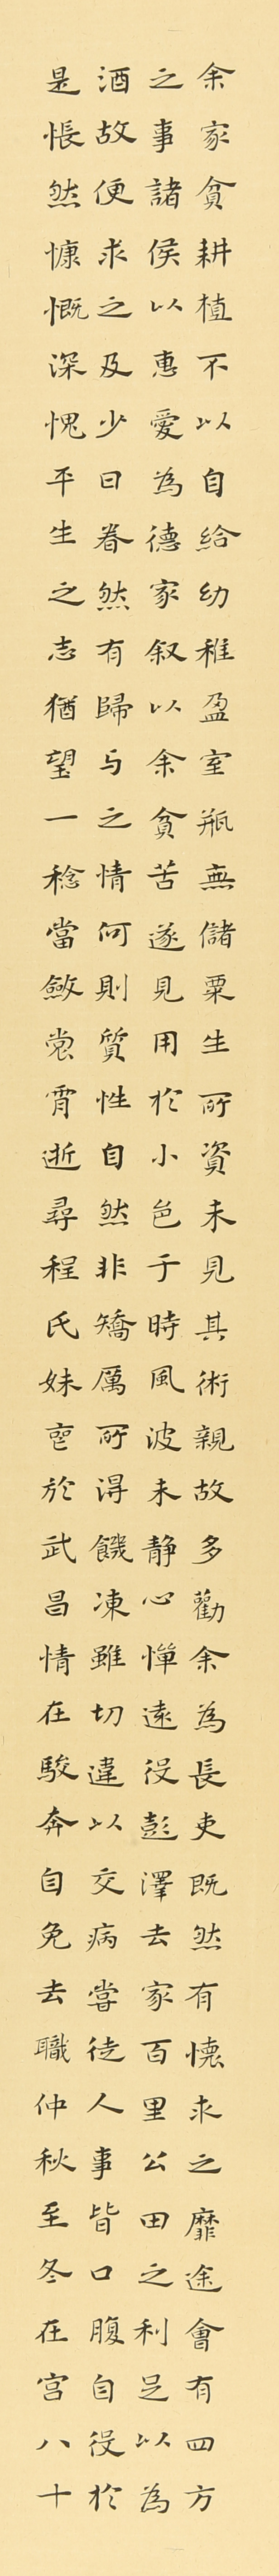 余家貧耕植不以自給幼稚盈室瓶無儲粟生所資未見其術親故多勸余為長吏既然有懷求之靡途會有四方
之事諸侯以惠愛為德家叙以余貧苦遂見用於小邑于時風波未静心憚遠役彭澤去家百里公田之利足以為
酒故便求之及少日眷然有歸与之情何則質性自然非矯厲所得饑凍雖切違以交病嘗從人事皆口腹自役於
是悵然慷慨深愧平生之志猶望一稔當斂裳霄逝尋程氏妹喪於武昌情在駿奔自免去職仲秋至冬在宫八十